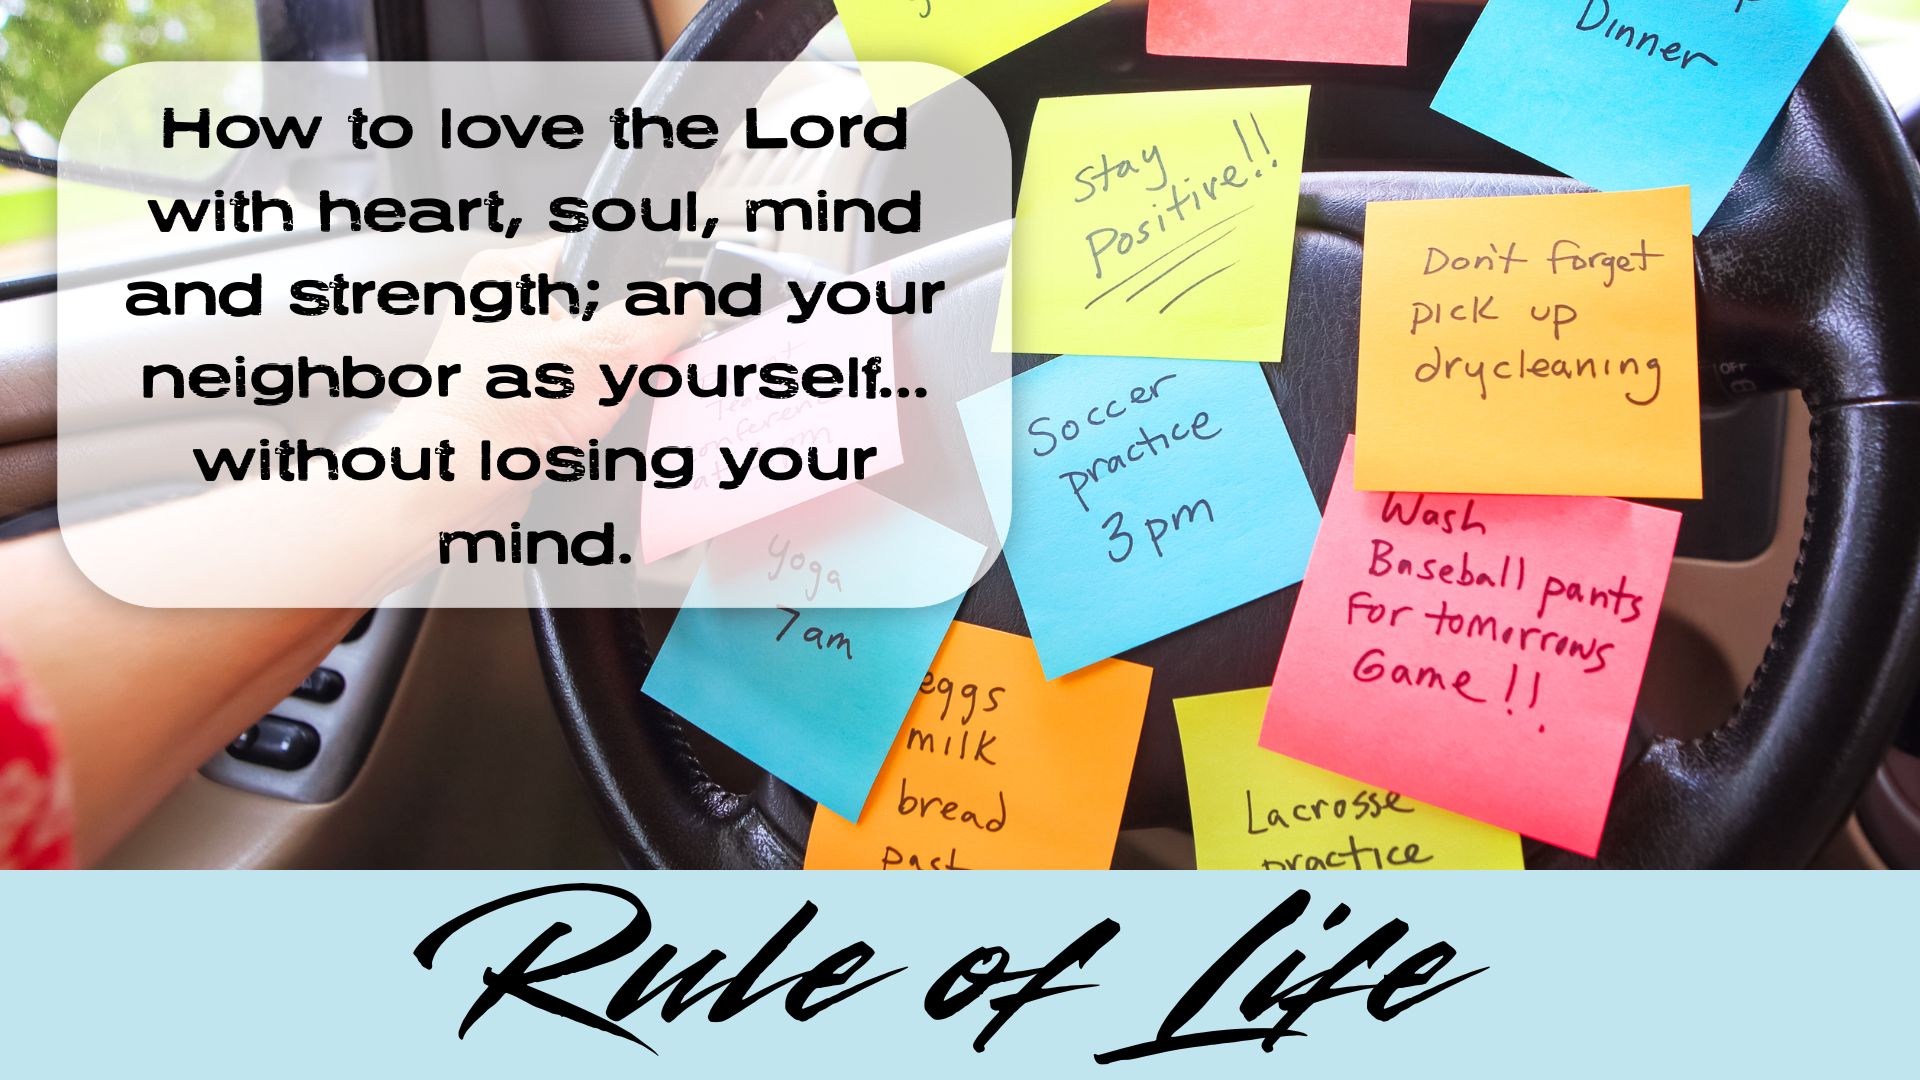 How to love the Lord
with heart, soul, mind
and strength; and your
neighbor as yourself...
without losing your
mind.
Dinner
Stay
Positive!!
Don't forget
pick up
drycleaning
Soccer
practice
3pm
Wash
Baseball pants
For tomorrows
Game!!
at
Yoga
7am
eggs
milk
bread
Lacrosse
practice
OFF
Rule of Life